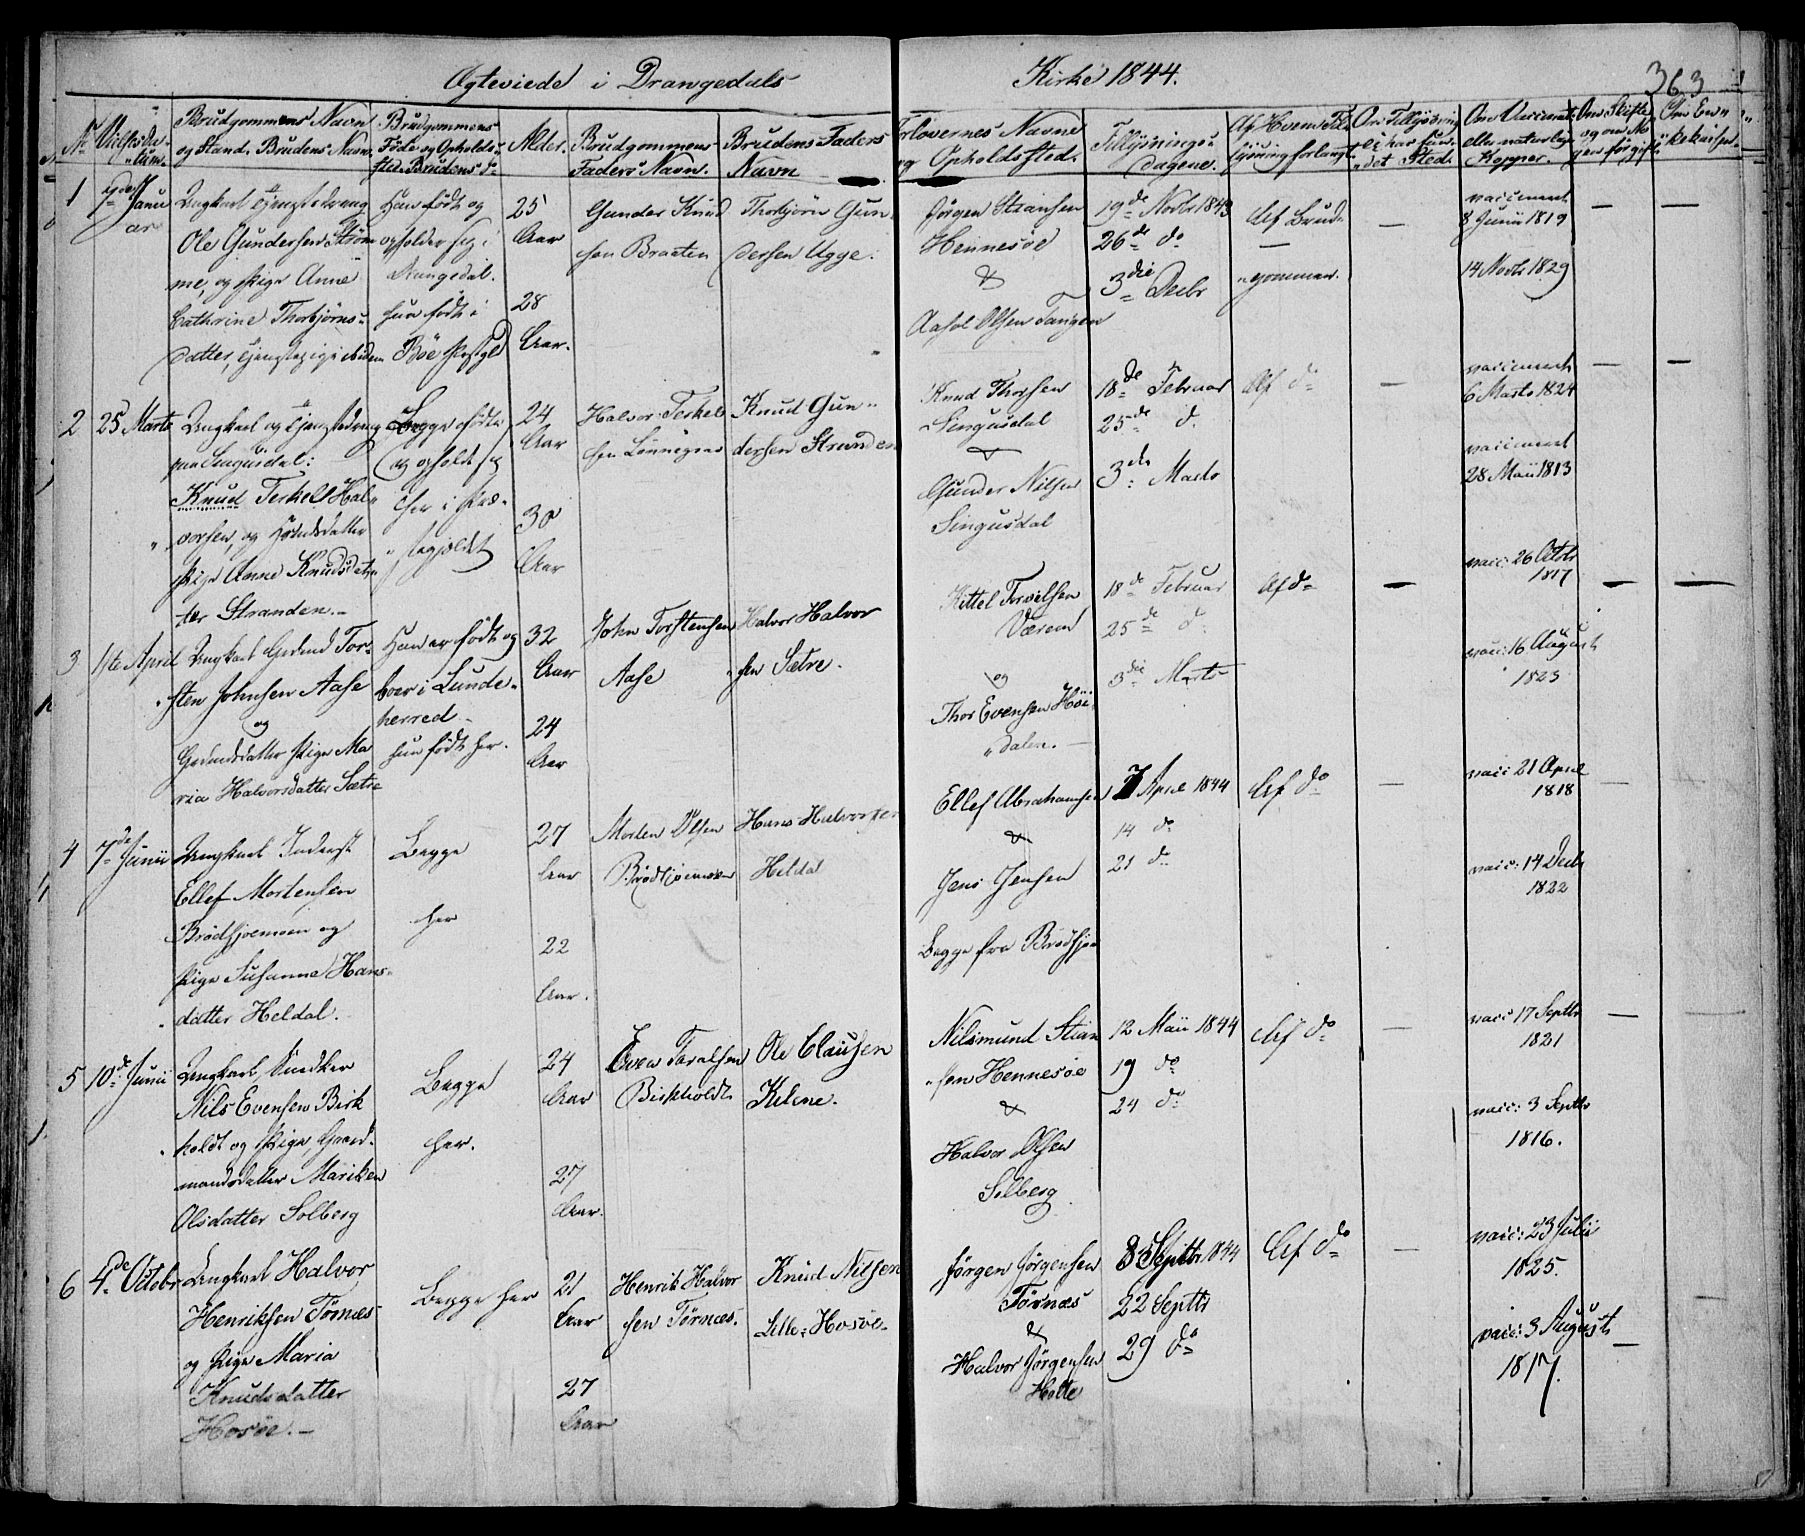 Ægteviede i Drangedals Kirke 1844.
363
No
Vielses Datum.
Brudgommens Navn
og Stand. Brudens Navn.
Brudgommens
Føde og Opholds-
sted. Brudens do
Alder.
Brudgommens
Faders Navn.
Brudens Faders
Navn
Forlovernes Navne
og Opholdssted.
Tillysnings-
dagene.
Af Hvem Til-
lysning forlangt
Om Tillysning
ei har fun-
det Sted.
Om Vaccineret
eller naturlige
Kopper.
Om Skifte
1
7de Janu
ar
Ungkarl Tjenestedreng
Ole Gundersen Strøm-
me, og Pige Anne
Cathrine Thorbjørns-
datter, Tjenestepige ibidem
Han født og
opholder sig i
Drangedal.
hun født i
Bøe Præstgd
25
Aar
28
Aar.
Gunder Knud
sen Braaten
Thorbjørn Gun-
dersen Ugge.
Jørgen Stiansen
Hennesøe
&
Aasol Olsen Tangen
19de Novbr 1843
26de do
3die Decbr
Af Brud-
gommen.
vaccineret
8 Junii 1819
14 Novbr 1829
2
25 Marts
Ungkarl og Tjenestedreng
paa Singusdal:
Knud Terkel Hal-
vorsen, og Gaardsdatter
Pige Anne Knudsdat-
ter Stranden.
Begge fødte
og opholdt sig
her i Præ-
stegjeldet
24
Aar
30
Aar
Halvor Terkel
sen Lønnegrav
Knud Gun-
dersen Stranden
Knud Thorsen
Singusdal
Gunder Nilsen
Singusdal
18de Februar
25de do
3die Marts
Af do
vaccineret
6 Marts 1824
vaccineret
28 Maii 1813
3
11te April
Ungkarl Gaardmd Tor-
sten Johnsen Aase
og
Gaardmdsdatter Pige Ma
ria Halvorsdatter Sætre
Han er født og
boer i Lunde-
herred
hun født her.
32
Aar
24
Aar
John Torstensen
Aase
Halvor Halvor
sen Sætre.
Kittel Torvilsen
Væraad
og
Thor Evensen Høi-
dalen.
18de Februar
25de do
3die Marts
Af do
vacc: 26 Octbr
1817
vacc: 16 August
1823
4
7de Junii
Ungkarl Inderst
Ellef Mortensen
Brødsjømoen og
Pige Susanne Hans-
datter Heldal.
Begge
her
27
Aar
22
Aar.
Morten Olsen
Brødsjømoen
Hans Halvorsen
Heldal
Ellef Abrahamsen
&
Jens Jensen
Begge fra Brødsjøe
7 April 1844
14 do
21 do
Af do
vacc: 21 April
1818
vacc: 14 Decbr
1822
5
10de Junii
Ungkarl Snedker
Nils Evensen Birk
holdt og Pige, Gaard-
mandsdatter Mariken
Olsdatter Solberg
Begge
her.
24
Aar
27
Aar.
Even Taralsen
Birkholdt
Ole Clausen
Kilene.
Nilsmund Stian
sen Hennesøe
&
Halvor Olsen
Solberg
12 Maii 1844
19 do
24 do
Af do
vacc 17 Septbr
1821
vacc: 3 Septbr
1816.
6
4de Octobr
Ungkarl Halvor
Henriksen Tørnæs
og Pige Maria
Knudsdatter
Hosøe.
Begge her
21
Aar
27
Aar
Henrik Halvor
sen Tørnæs.
Knud Nilsen
Lille-Hosøe
Jørgen Jørgensen
Tørnæs
&
Halvor Jørgensen
Holte
8 Septbr 1844
22 Septbr
29 do
Af do
vacc: 23 Julii
1825.
vacc: 3 August
1817.